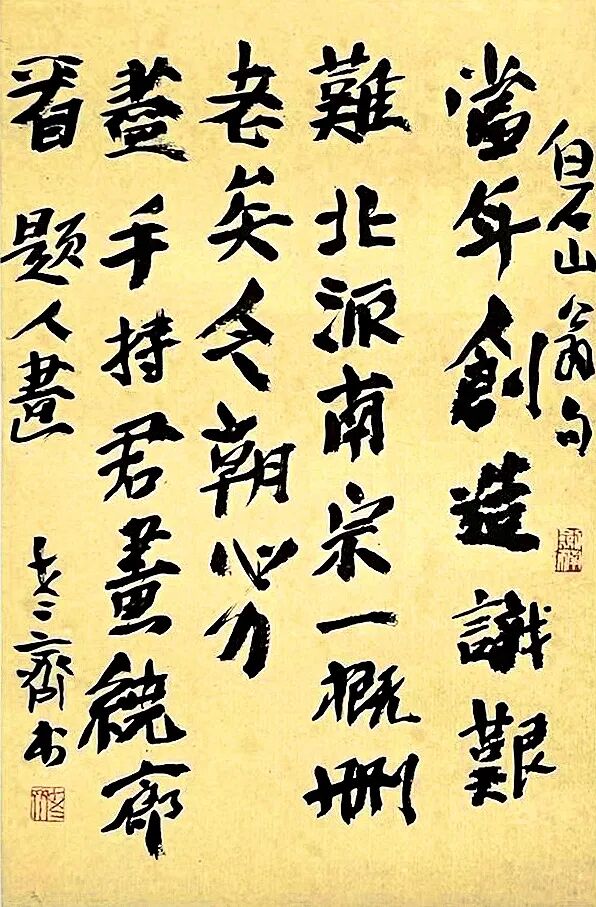 白石山翁句
當年創造識艱
難北派南宗一概刪
老矣今朝心力
盡手持君畫繞廊
看 題人畫
齋书